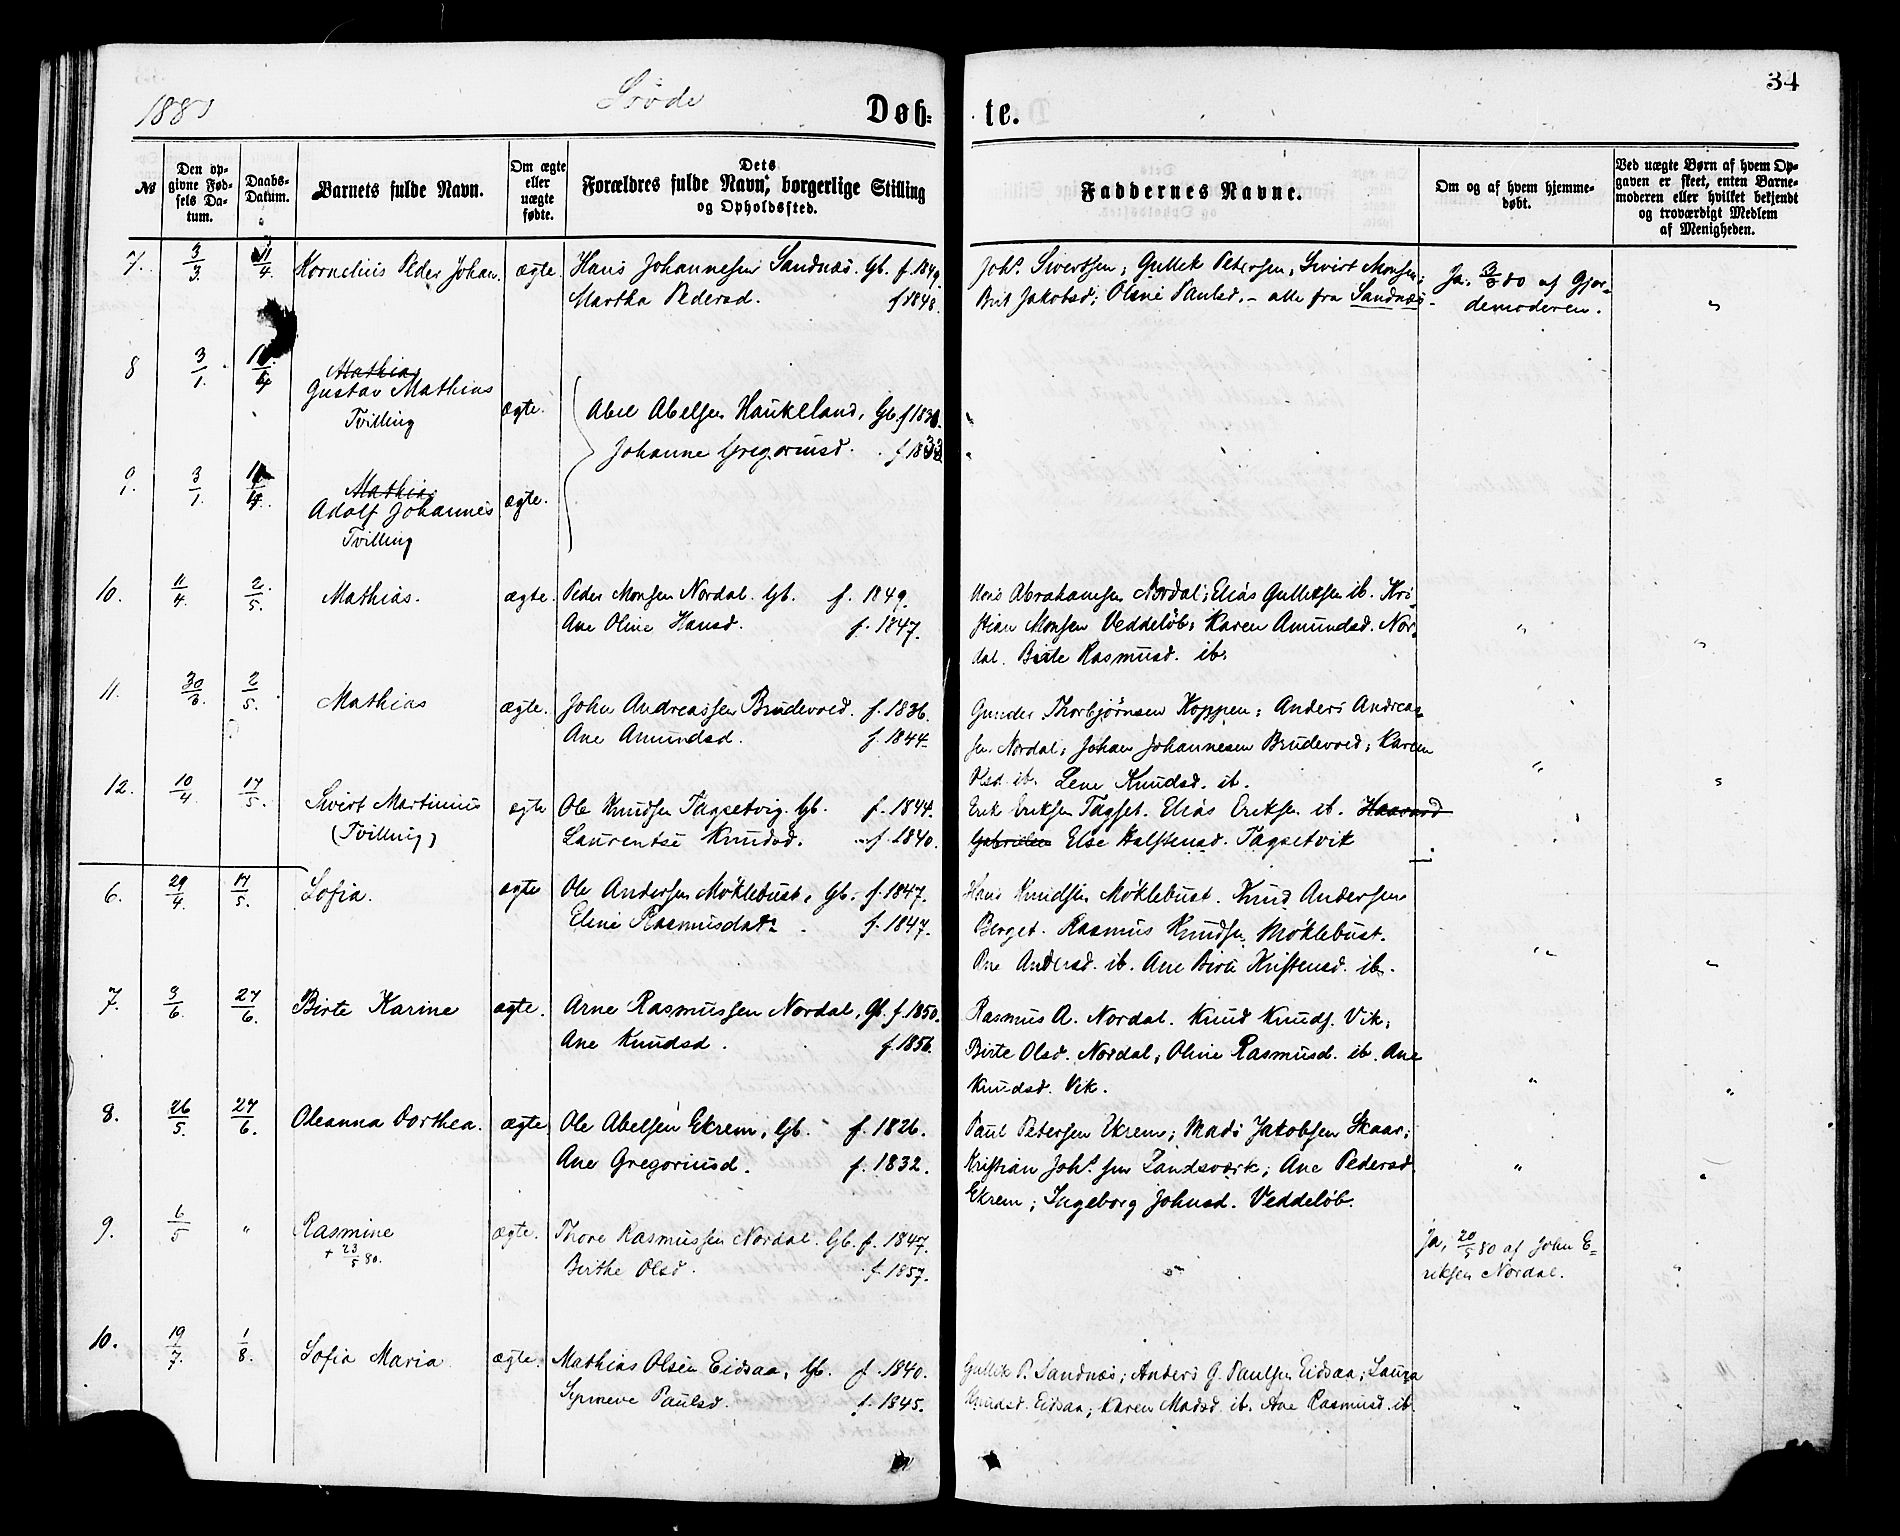 34
1880
Døb-
te.
№
Den op-
givne Fød-
sels Da-
tum.
Daabs-
Datum.
Barnets fulde Navn.
Om ægte
eller
uægte
fødte.
Dets
Forældres fulde Navn, borgerlige Stilling
og Opholdssted.
Faddernes Navne.
Om og af hvem hjemme-
døbt.
Ved uægte Børn af hvem Op-
gaven er skeet, enten Barne-
moderen eller hvilket bekjendt
og troværdigt Medlem
af Menigheden.
7. 3/3 11/4. Kornelius Peder Johan. ægte. Hans Johannesen Sandnæs. Gb. f. 1849.
Martha Pedersd. f 1848.
Johs. Sivertsen, Gullek Petersen, Sivert Monsen;
Brit Jakobsd; Oline Paulsd. – alle fra Sandnæs.
Ja. 3/3 80 af Gjor-
demoderen. "
8 3/1. 11/4 Mathias
Gustav Mathias
Tvilling
ægte. Abel Abelsen Haukeland, Gb. f 1830.
Johanne Gregoriusd. f. 1833
9. 3/1. 11/4. Mathias
Adolf Johannes
Tvilling
ægte.
10. 11/4. 2/5. Mathias. ægte. Peder Monsen Nordal. Gb. f. 1849.
Ane Oline Hansd. f. 1847.
Abrahamsen Nordal; Elias Gulleksen ib. Kri-
stian Monsen Veddeløb; Karen Amundsd. Nor-
dal. Birte Rasmusd. ib.
" "
11. 30/3. 2/5. Mathias ægte. John Andreassen Brudevold. f. 1836.
Ane Amundsd. f. 1844.
Gunder Thorbjørnsen Koppen; Anders Andreas-
sen Nordal; Johan Johannesen Brudevold; Karen
Olsd ib. Lene Knudsd. ib.
" "
12. 10/4. 17/5. Sivert Martinius
(Tvilling)
ægte Ole Knudsen Tagsetvig. Gb. f. 1844.
Laurentse Knudsd. f. 1840.
Erik Eriksen Tagset. Elias Eriksen ib. Haavard
Gabrielsen Else Halstensd. Tagsetvik
6. 29/4. 17/5. Sofia. ægte Ole Andersen Møklebust, Gb. f. 1847.
Eline Rasmusdatr. f. 1847.
Hans Knudsen Møklebust. Knud Andersen
Berget. Rasmus Knudsen Møklebust.
Ane Andersd. ib. Ane Birte Kristensd. ib.
" "
7. 3/6. 27/6. Birte Karine ægte. Arne Rasmussen Nordal, Gb. f. 1850.
Ane Knudsd. f. 1856.
Rasmus A. Nordal. Knud Knuds. Vik,
Birte Olsd. Nordal, Oline Rasmusd. ib. Ane
Knudsd. Vik.
" "
8. 26/5. 27/6. Oleanna Dorthea. ægte Ole Abelsen Ekrem, Gb. f. 1826.
Ane Gregoriusd. f. 1832.
Paul Petersen Ekrem; Mads Jakobsen Skaar;
Kristian Johs. sen Landsværk; Ane Pedersd.
Ekrem; Ingeborg Johnsd. Veddeløb.
" "
9. 6/5 " Rasmine
+ 23/5 80.
ægte. Thore Rasmussen Nordal. Gb. f. 1847.
Berthe Olsd. f. 1857.
Ja, 20/5 80 af John E-
riksen Nordal.
"
10. 19/7. 1/8. Sofia Maria ægte. Mathias Olsen Eidsaa, Gb. f. 1840.
Synneve Paulsd. f. 1845.
Gullik P. Sandnæs; Anders G. Paulsen Eidsaa; Laura
Knudsd. Eidsaa; Karen Madsd. ib. Ane Rasmusd. ib.
" "